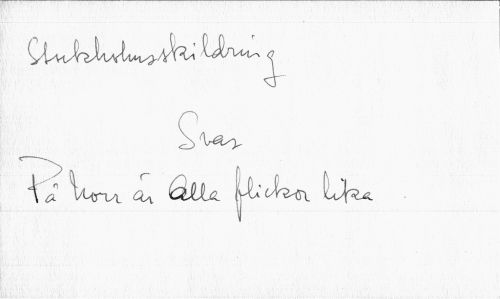 Stockholmsskildring
Svas
På Norr är alla flickor lika